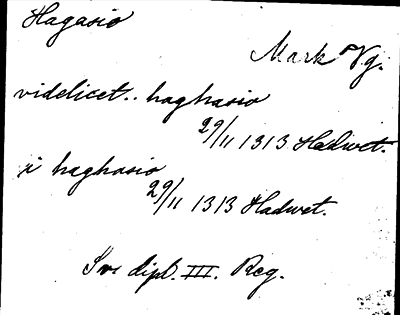 Hagasio
Mark Vg.
videlicet.. haghasio
29/11 1313 Hadwet.
i haghasio
29/11 1313 Hadwet.
Sv. dipl. III. Reg.